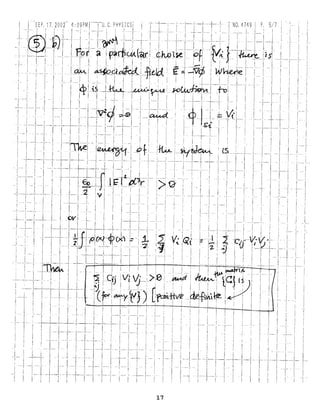 SEP. 17. 2002 4:09PM U C PHYSICS NO. 4749 P. 5/7
(5) b)
For a particular choise of {Vi} there is
any
an associated field E = -∇φ where
φ is the unique solution to
∇²φ = 0 and φ|Σi = Vi
The energy of the system is
ε0/2 ∫V |E|² d³r > 0
or
1/2 ∫ ρ(x) φ(x) = 1/2 Σ Vi Qi = 1/2 Σ Cij Vi Vj
Then
Σij Cij Vi Vj > 0 and then the matrix {C} is
(for any {V}) [positive definite
17